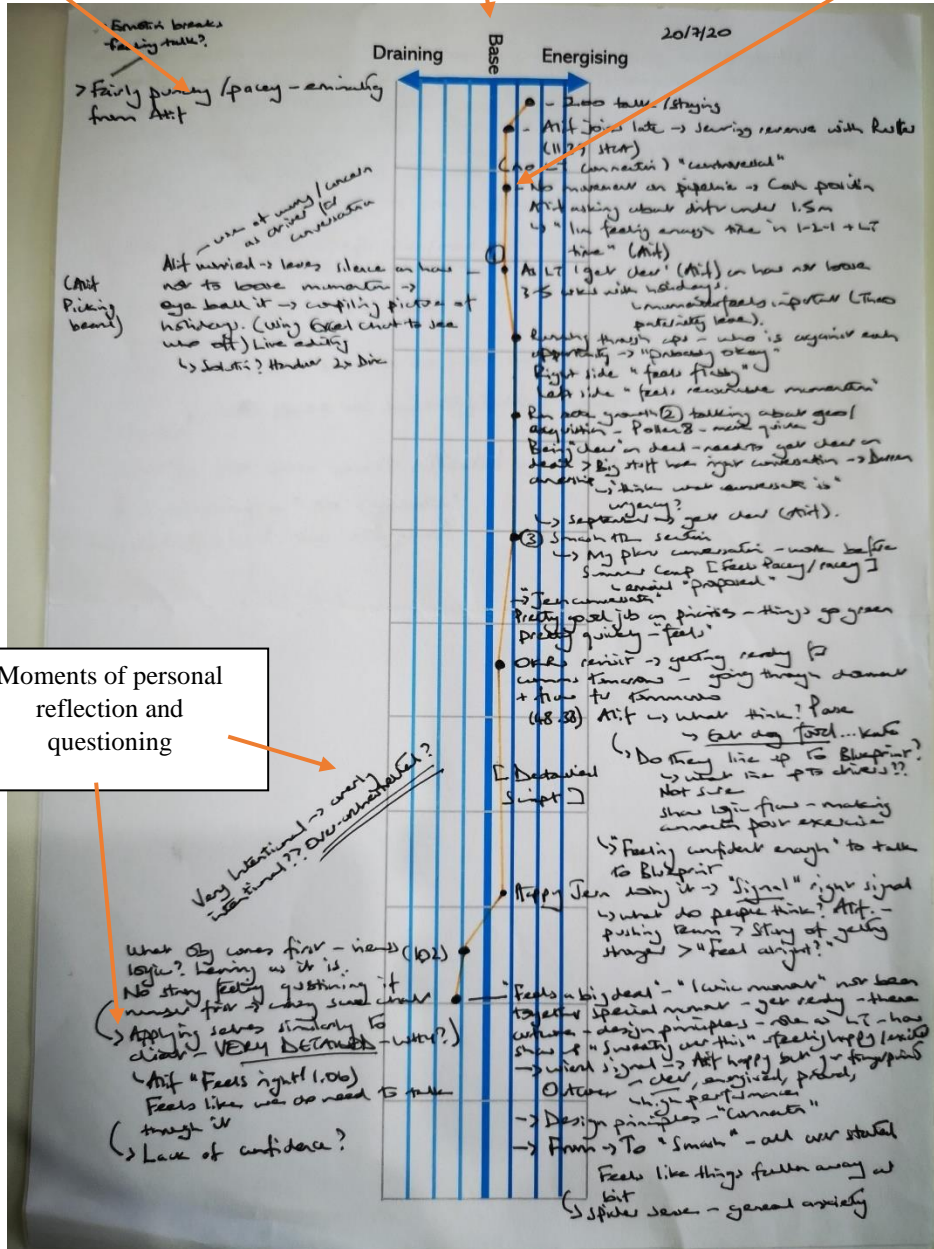 Emotion breaks
feeling talk?
20/7/20
Draining
Base
Energising
> Fairly punchy /pacey - eminating
from Atif
- 2.00 talk / staying
- Atif joins late → securing revenue with
(11.27 start)
"controversial"
- No movement on pipeline → Cash position
Atif asking about under 1.5m
↳ "I'm feeling enough time in 1-2-1 + LT
time" (Atif)
- use of worry / concern
as driver for
conversation
①
(Atif
Picking
beans)
Atif worried → leaves silence on how -
not to loose momentum →
eye ball it → compiling picture of
holidays. (using Excel chart to see
who off) Live editing
↳ Solution? 2x
As LT 'get clear' (Atif) on how not loose
3-5 wks with holidays.
feels important (
paternity leave).
Running through ops - who is against each
opportunity → "probably okay"
Right side "feels fishy"
Left side "feels reasonable momentum"
growth ② talking about geo/
acquisition -
Being "clear" on deal - needs to get clear on
deal > Big stuff have right conversation →
ownership
↳ "think what conversation is"
urgency?
↳ September → get clear (Atif).
③ Smash the section
↳ My plan conversation - work before
Summer Camp [Feels Pacey/racey]
↳ email "proposed"
→ "Jen conversation"
Pretty good job on priorities - things go green
pretty quickly - "feels"
OKRs revisit → getting ready for
comms tomorrow - going through document
+ flow for tomorrow
(48.38) Atif ↳ what think? Pause
↳ Eat dog food...Kate
↳ Do they line up to Blueprint?
↳ what line up to drivers??
Not sure
Show logic flow - making
connection post exercise
Moments of personal
reflection and
questioning
[Detailed
Script]
Very Intentional → overly
intentional?? Over-orchestrated?
↳ "Feeling confident enough" to talk
to Blueprint
Happy Jen doing it → "Signal" right signal
↳ what do people think? Atif -
pushing team > Story of getting
stronger > "Feel alright?"
What Obj comes first - (1.02)
logic? Leaving as it is.
No strong feeling questioning it
number first →
↳ Applying selves similarly to
client - VERY DETAILED - WHY?)
↳ Atif "Feels right (1.06)
Feels like we do need to talk
through it
↳ Lack of confidence?
"Feels a big deal" - "Iconic moment" not been
together special moment - get ready - these
culture - design principles - role as LT - how
show up "Sweaty over this" → feeling happy
→ signal → Atif happy but
Outcomes - clear, energised, proud,
↳ high performance
→ Design principles - "Connection"
→ From → To "Smash" - all over
Feels like things fallen away at
bit
↳ Spider sense - general anxiety